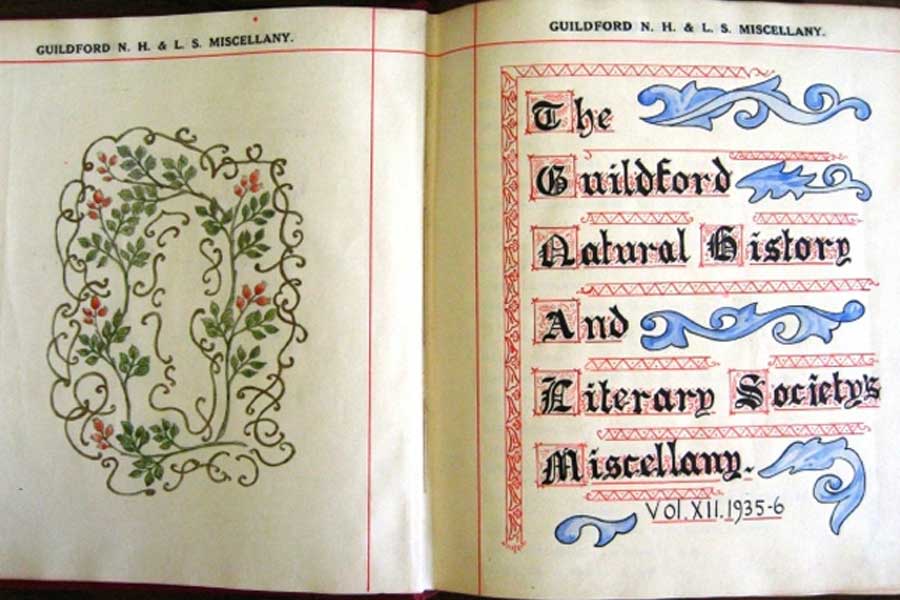 GUILDFORD N. H. & L. S. MISCELLANY.
GUILDFORD N. H. & L. S. MISCELLANY.
The
Guildford
Natural History
And
Literary Society's
Miscellany.
Vol. XII. 1935-6